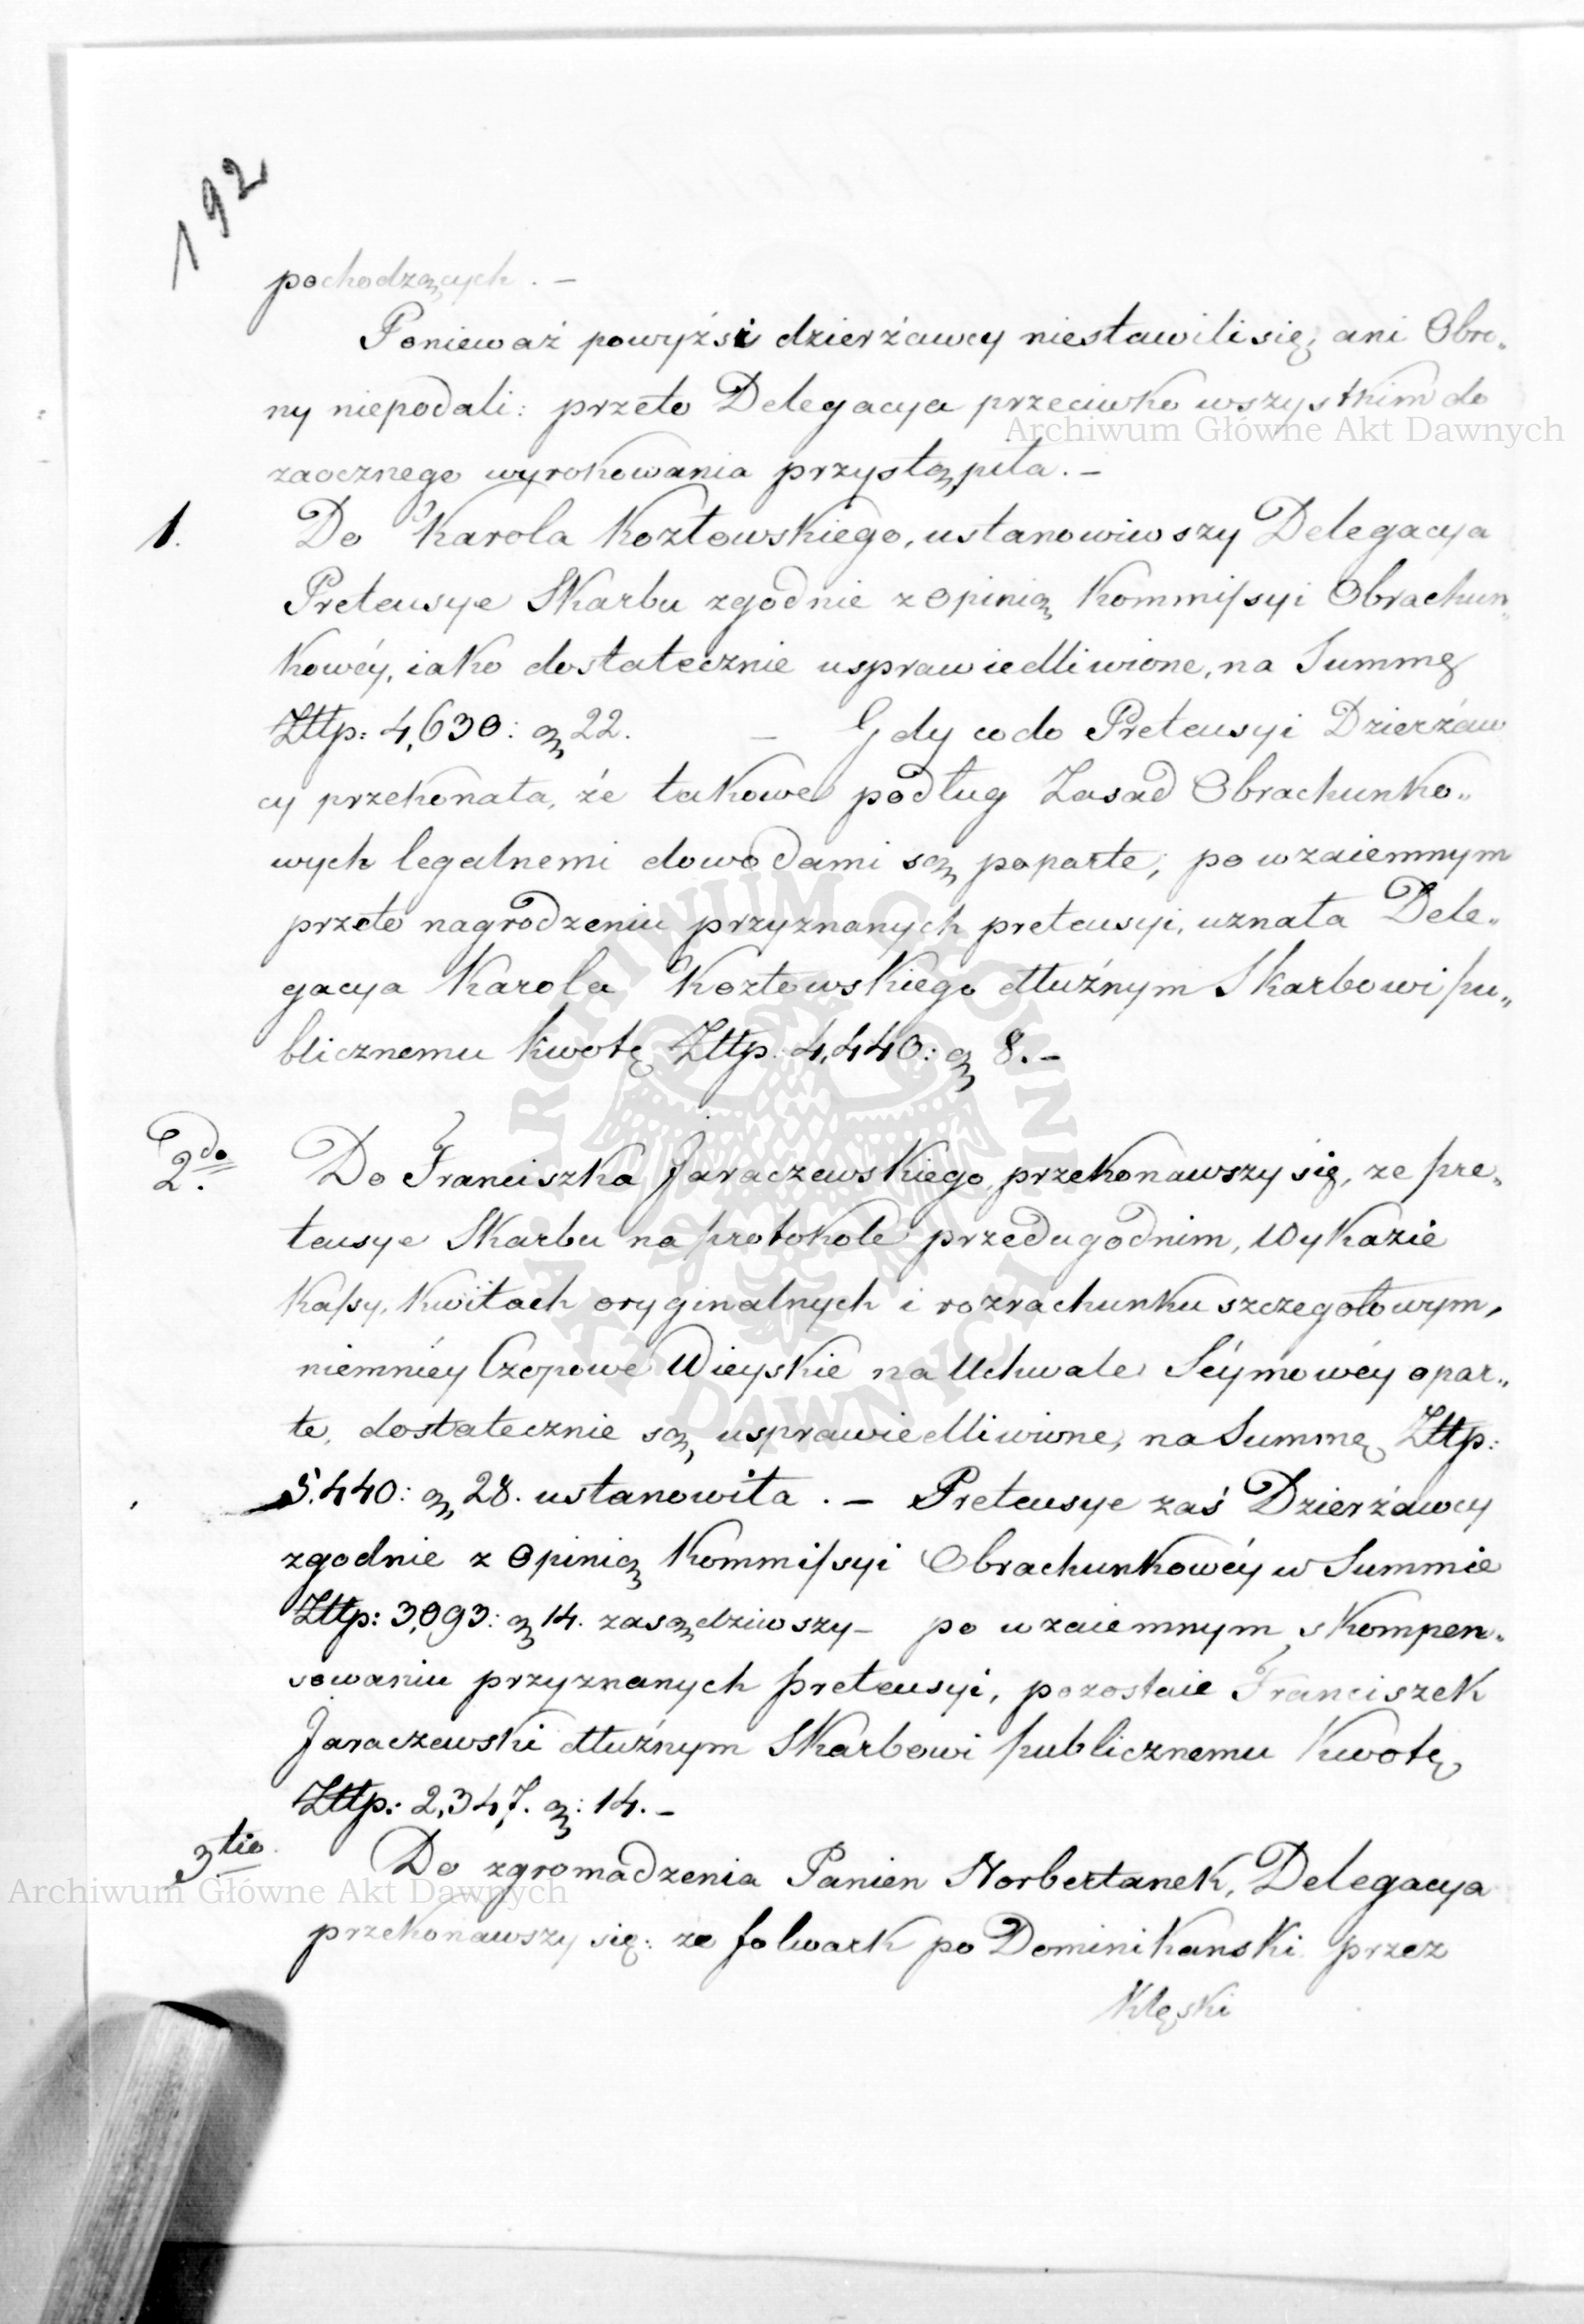 192
pochodzących. –
Ponieważ powyżsi dzierżawcy niestawili się, ani Obro„
ny niepodali: przeto Delegacya przeciwko wszystkim do
zaocznego wyrokowania przystąpiła. –
1. Do Karola Kozłowskiego, ustanowiwszy Delegacya
Pretensye Skarbu zgodnie z Opinią Kommissyi Obrachun„
kowéy, iako dostatecznie usprawiedliwione, na Summę
Złtp: 4,630: gr 22. – Gdy co do Pretensyi Dzierżaw
cy przekonała, że takowe podług Zasad Obrachunko„
wych legalnemi dowodami są poparte; po wzaiemnym
przeto nagrodzeniu przyznanych pretensyi, uznała Dele„
gacya Karola Kozłowskiego dłużnym Skarbowi pu„
blicznemu kwotę Złtp. 4,440: gr 8. –
2do. Do Franciszka Jaraczewskiego, przekonawszy się, ze pre„
tensye Skarbu na protokole przedugodnim, Wykazie
Kassy, Kwitach oryginalnych i rozrachunku szczegołowym,
niemniéy Czopowe Wieyskie na Uchwale Séymowéy opar„
te, dostatecznie są usprawiedliwione, na Summę Złtp:
5.440: gr 28. ustanowiła. – Pretensye zaś Dzierżawcy
zgodnie z Opinią Kommissyi Obrachunkowéy w Summie
Złtp: 3,093: gr 14. zasądziwszy – po wzaiemnym skompen„
sowaniu przyznanych pretensyi, pozostaie Franciszek
Jaraczewski dłużnym Skarbowi publicznemu Kwotę
Złtp: 2,347. gr: 14. –
3tio. Do zgromadzenia Panien Norbertanek, Delegacya
przekonawszy się: ze folwark po Dominikanski przez
Klęski
Archiwum Główne Akt Dawnych
Archiwum Główne Akt Dawnych
ARCHIWUM GŁÓWNE AKT DAWNYCH